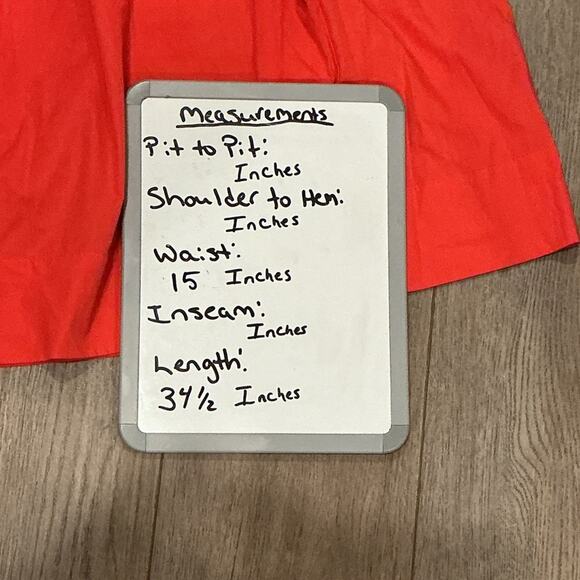 Measurements
Pit to Pit:
Inches
Shoulder to Hem:
Inches
Waist:
15 Inches
Inseam:
Inches
Length:
34 1/2 Inches